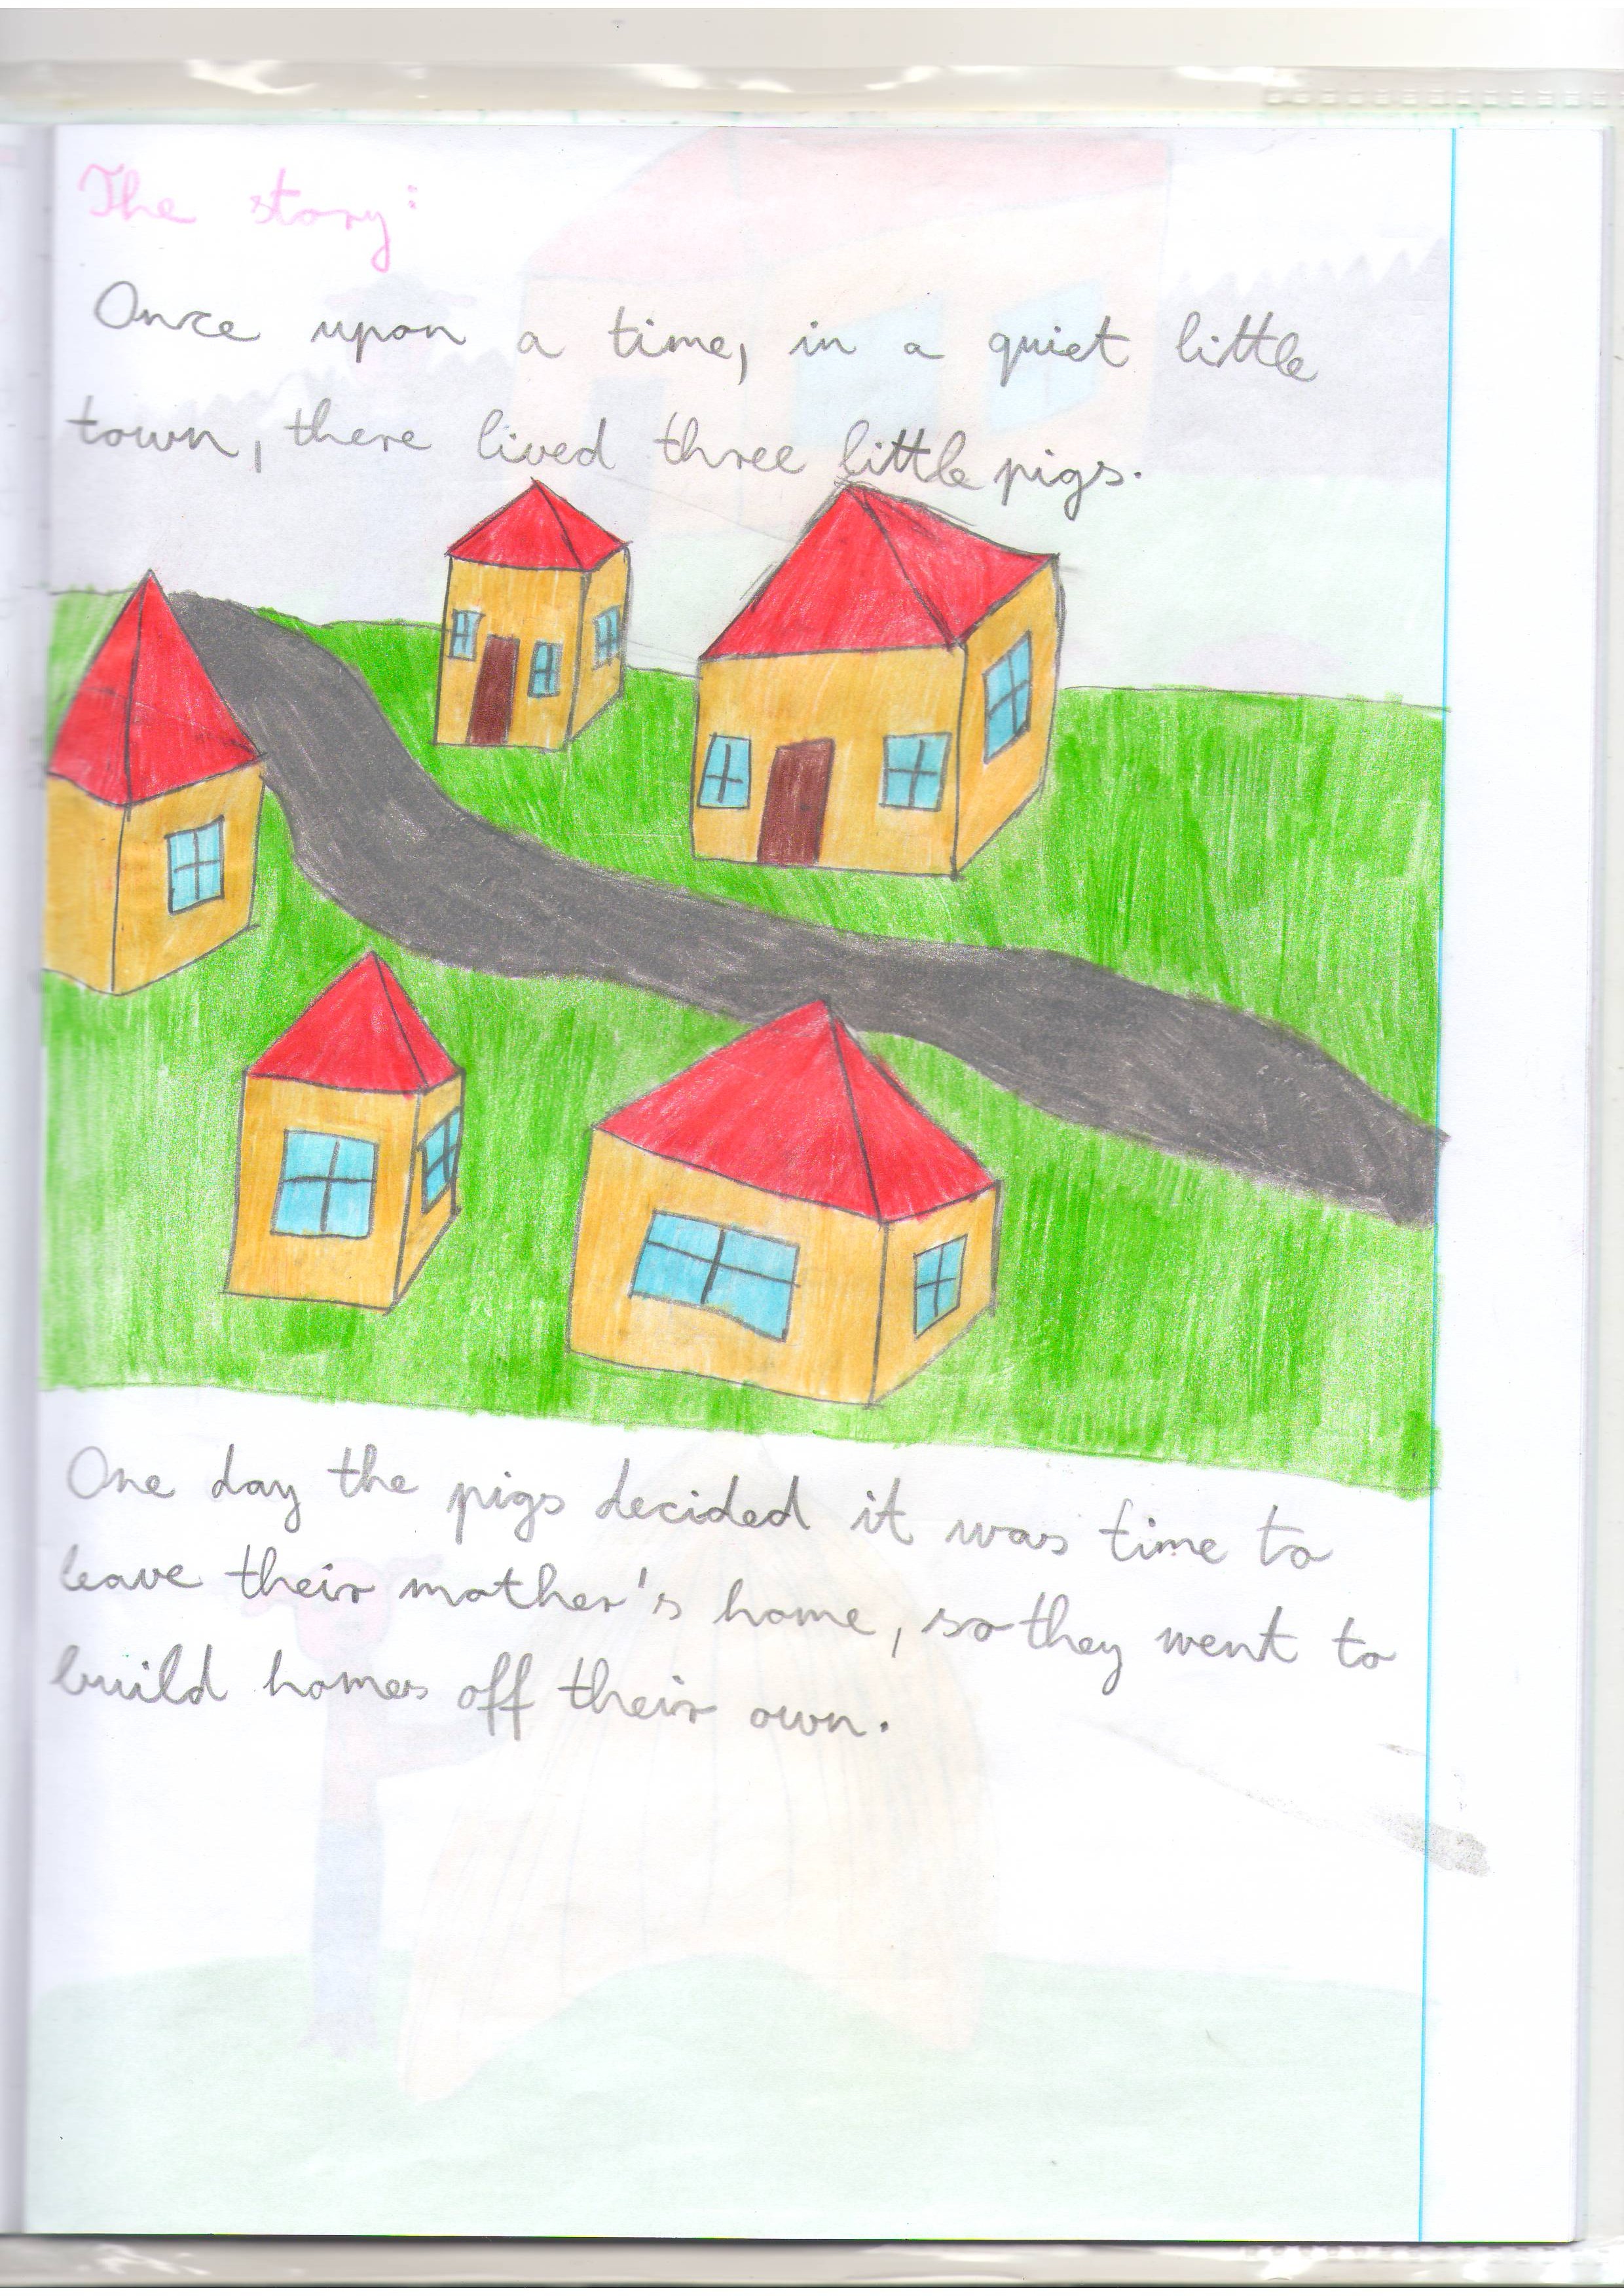 The story:
Once upon a time, in a quiet little
town, there lived three little pigs.
One day the pigs decided it was time to
leave their mother's home, so they went to
build homes off their own.